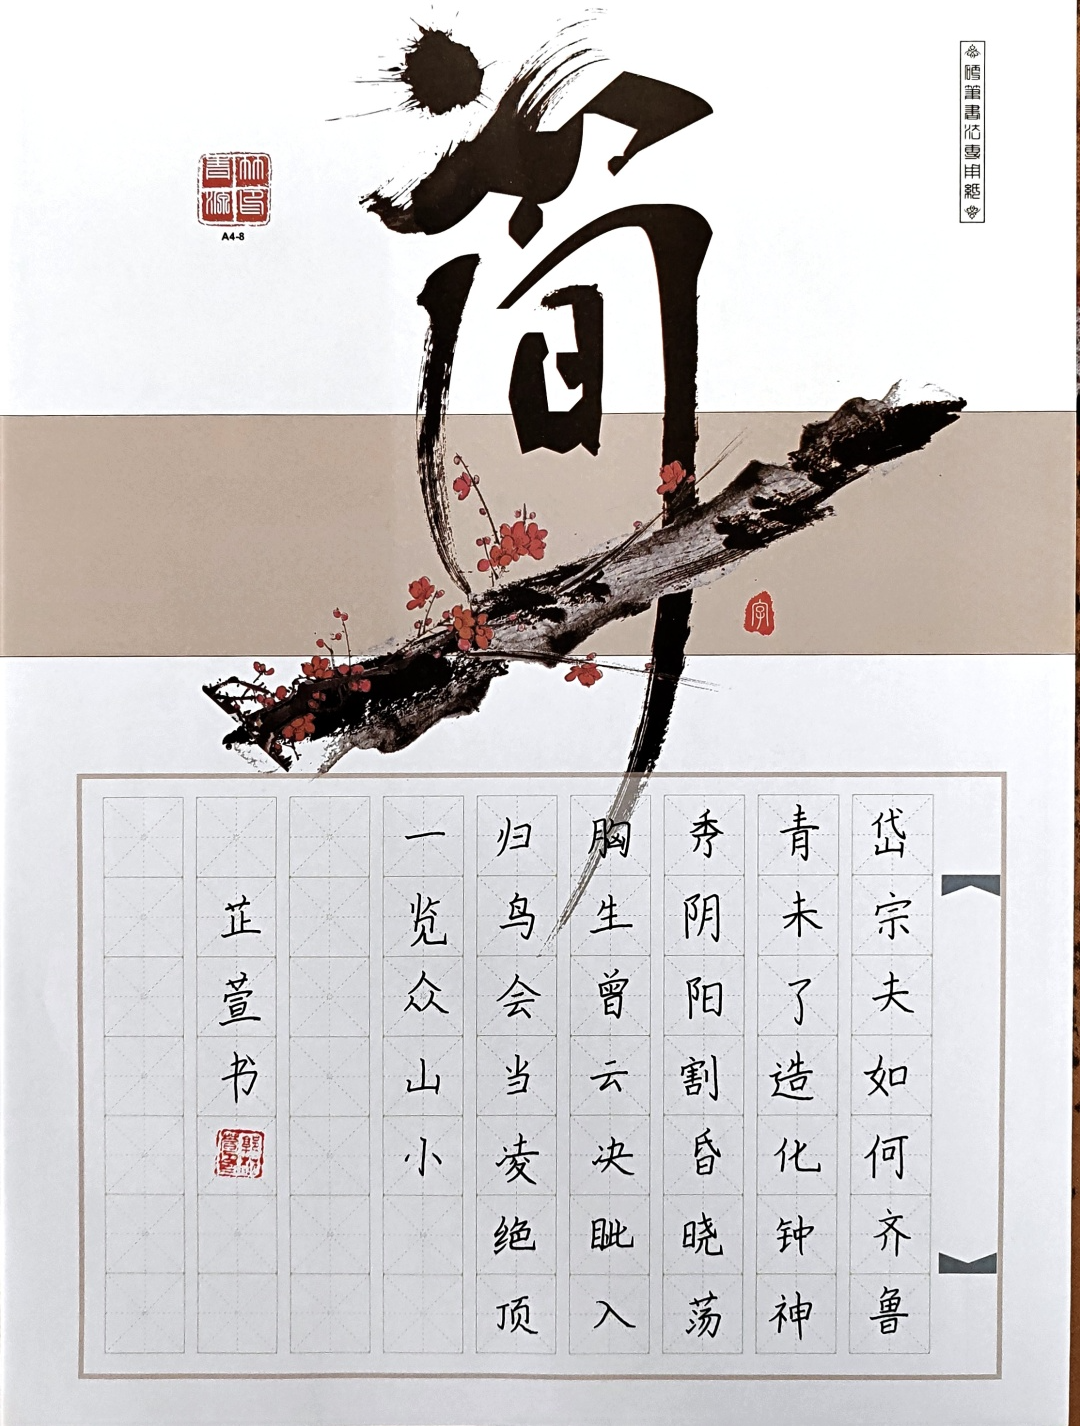 硬筆書法專用紙
简
A4-8
字
岱宗夫如何齐鲁
青未了造化钟神
秀阴阳割昏晓荡
胸生曾云决眦入
归鸟会当凌绝顶
一览众山小
芷萱书